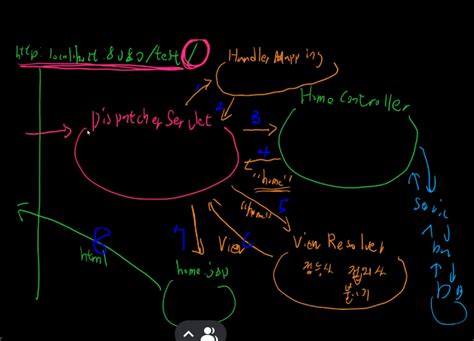 http: localhost 8080/test/
Handler Mapping
Home Controller
Dispatcher Servlet
2
3
4
"home"
"home"
5
Servic
7
View
6
View Resolver
접두사 접미사
8
html
home.jsp
DB